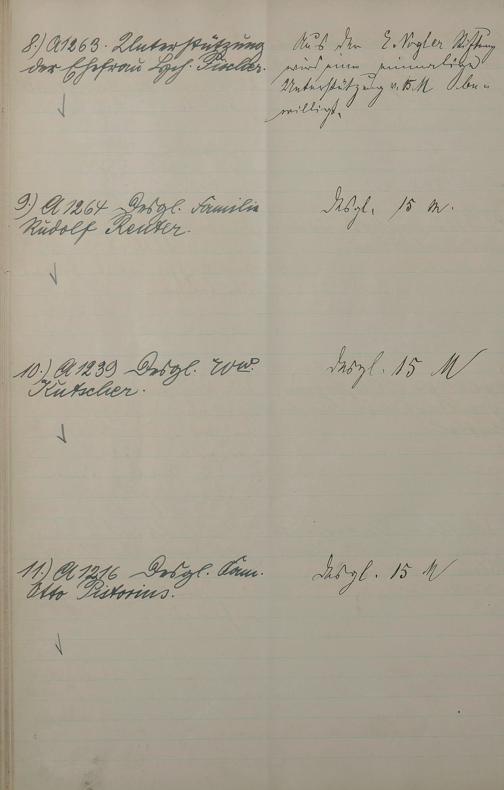 8.) A1263. Unterstützung
der Ehefrau Fischer.
Aus der E. Vogler Stiftung
wird eine einmalige
Unterstützung v. 15 M be-
willigt.
9.) A 1264 Desgl. Familie
Rudolf Reuter.
Desgl. 15 M.
10.) A 1239 Desgl. Wwe.
Kutscher.
Desgl. 15 M
11.) A 1216 Desgl. Fam.
Otto Pistorius.
Desgl. 15 M